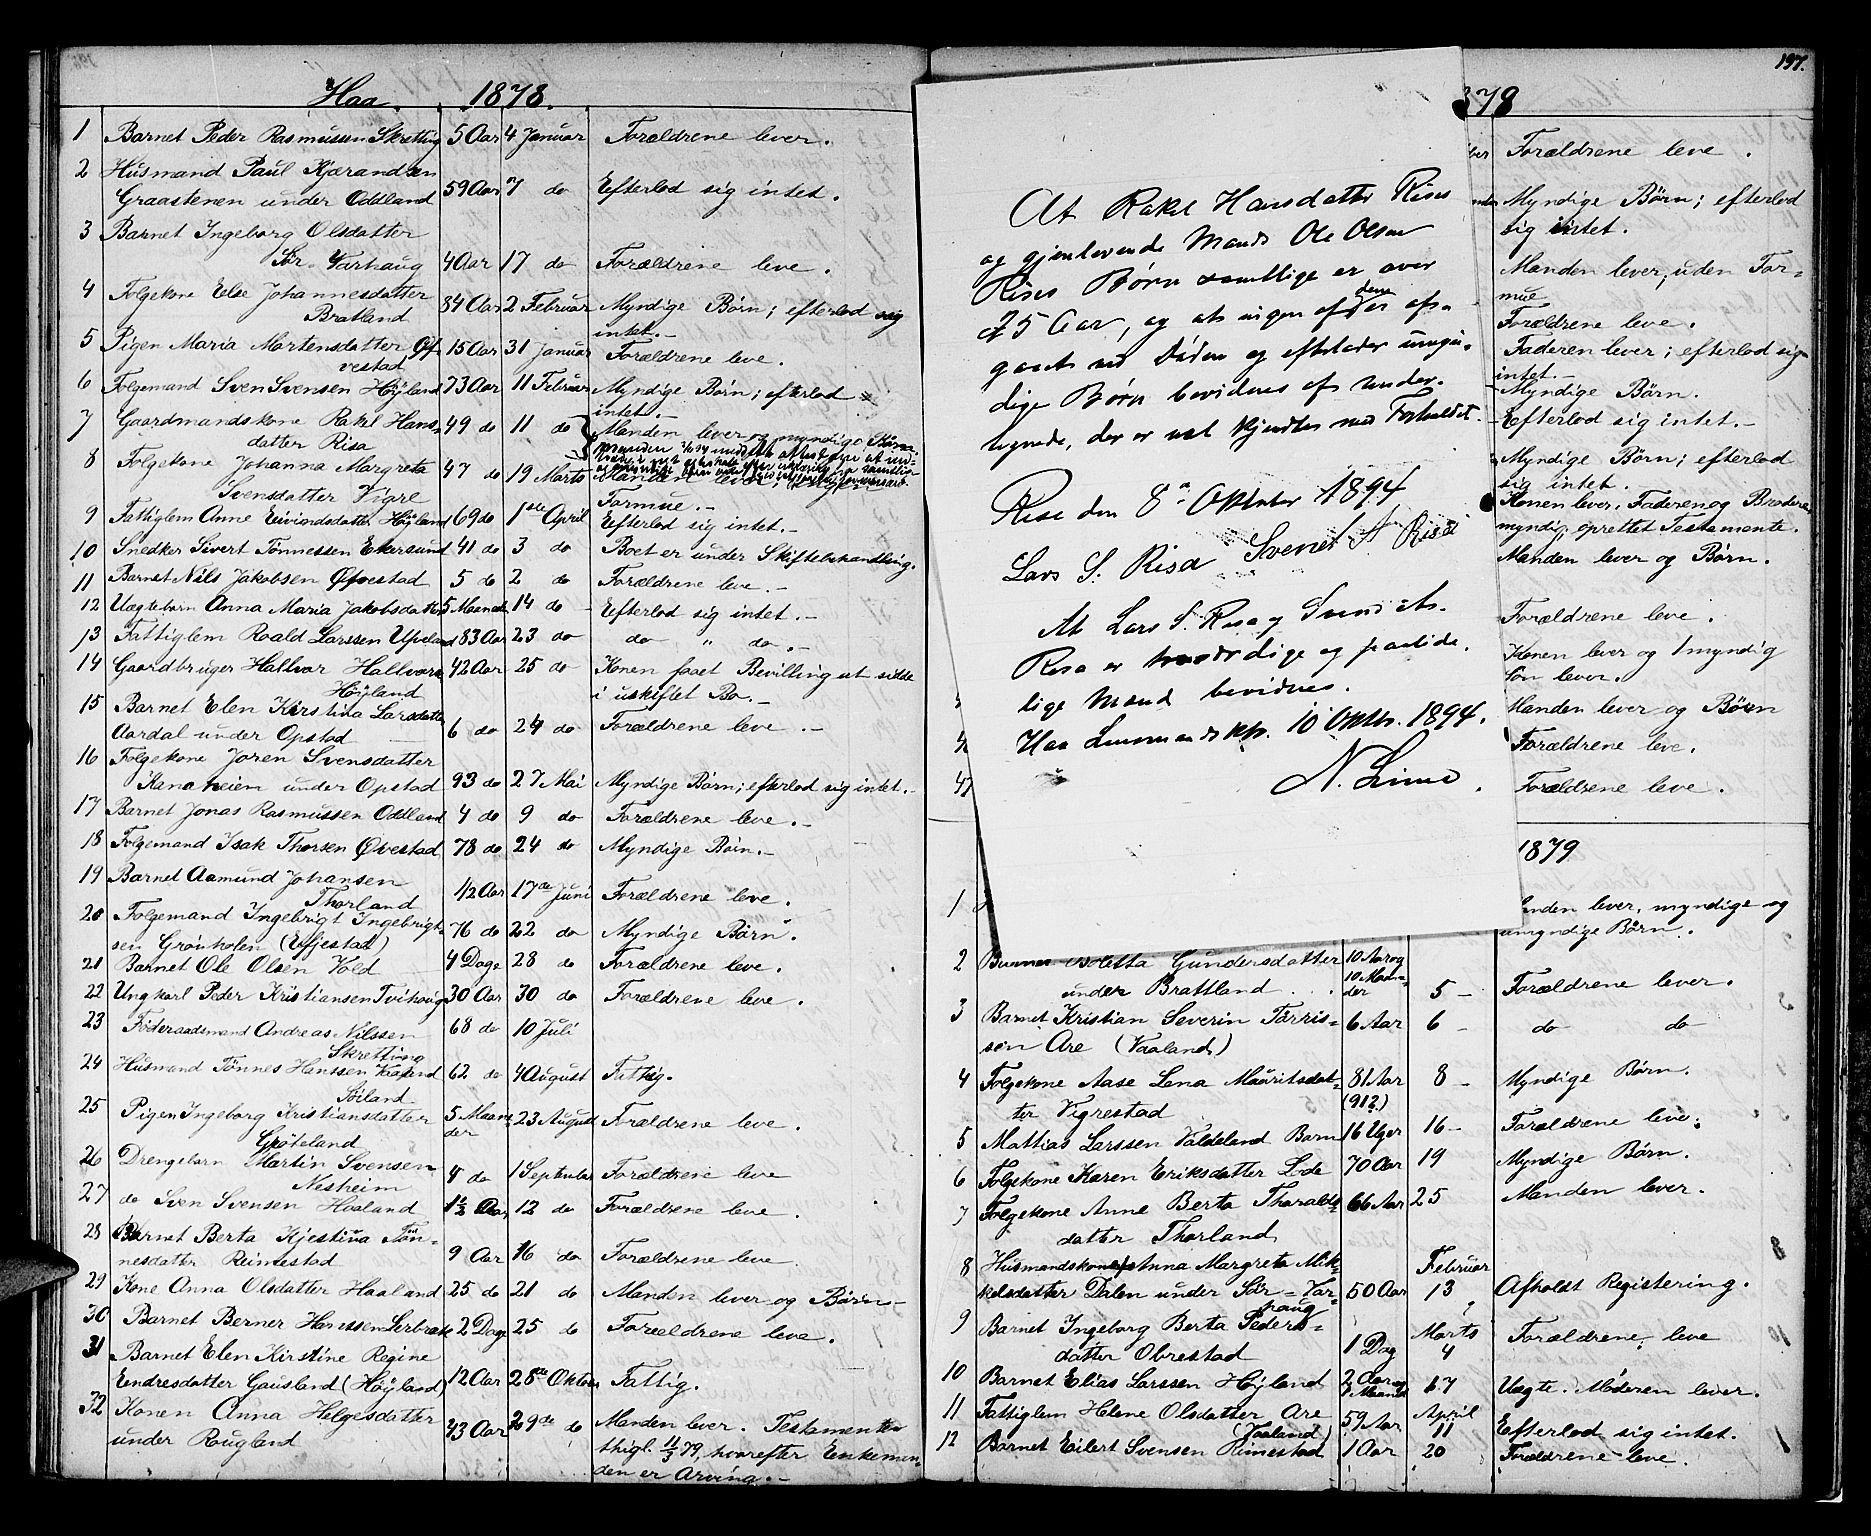 Haa. 1878.
1 Barnet Peder Rasmussen Skretting 5 Aar 4 Januar Forældrene lever.
2 Husmand Paul Kjærandsen
Graastenen under Oddland 59 Aar 7 do Efterlod sig intet.
3 Barnet Ingeborg Olsdatter
Sør. Varhaug 4 Aar 17 do Forældrene leve.
4 Folgekone Else Johannesdatter
Bratland 84 Aar 2 Februar Myndige Børn; efterlod sig
intet.-
5 Pigen Maria Mortensdatter Øf-
vestad 15 Aar 31 Januar Forældrene leve.
6 Folgemand Sven Svensen Höyland 73 Aar 11 Februar Myndige Børn; efterlod
intet.-
7 Gaardmandskone Rakel Hans-
datter Risa 49 do 11 do Manden lever og myndige Børn.
8 Folgekone Johanna Margreta
Svensdatter Vigre 47 do 19 Marts Manden lever; ingen
Formue.-
9 Fattiglem Anne Eivindsdatter Höyland 69 do 1ste April Efterlod sig intet.-
10 Snedker Sivert Tönnessen Ekersund 41 do 3 do Boet er under Skiftebehandling.
11 Barnet Nils Jakobsen Øfvestad 5 do 2 do Forældrene leve.-
12 Uægtebarn Anna Maria Jakobsdatter 5 Maaned 14 do - Efterlod sig intet.-
13 Fattiglem Roald Larssen Upeland 83 Aar 23 do do " do.-
14 Gaardbruger Hallvar Hallvars
Höyland 42 Aar 25 do Konen faaet Bevilling at sidde
i uskiftet Bo.-
15 Barnet Elen Kirstina Larsdatter
Aardal under Opstad 6 do 24 do Forældrene leve.-
16 Folgekone Joren Svensdatter
Kanaheien under Opstad 93 do 27 Mai Myndige Børn; efterlod sig intet.-
17 Barnet Jonas Rasmussen Oddland 4 do 9 do Forældrene leve.-
18 Folgemand Isak Thorsen Øvestad 78 do 24 do Myndige Börn.-
19 Barnet Aamund Johansen
Thorland 1/2 Aar 17de Juni Forældrene leve.
20 Folgemand Ingebrigt Ingebrigt-
sen Grönholen (Efjestad) 76 do 22 do Myndige Børn.
21 Barnet Ole Olsen Vold 4 Dage 28 do Forældrene leve.
22 Ungkarl Peder Kristiansen Tvihaug 30 Aar 30 do Forældrene leve.
23 Föderaadsmand Andreas Nilssen
Skretting 68 do 10 Juli
24 Husmand Tönnes Hanssen
Söiland 62 do 4 August Fattig.
25 Pigen Ingeborg Kristiansdatter
Gröteland 5 Maane-
der 23 August Forældrene leve.
26 Drengebarn Martin Svensen
Nesheim 4 do 1 September Forældrene leve
27 do Sven Svensen Haaland 1 1/2 Aar 12 do Forældrene leve.
28 Barnet Berta Kjestina Tön-
nesdatter Reimestad 9 Aar 16 do Forældrene leve
29 Kone Anna Olsdatter Haaland 25 do 21 do Manden lever og Børn-
30 Barnet Berner Hanssen Lerbræk 2 Dage 25 do Forældrene leve.
31 Barnet Elen Kirstine Regine
Endresdatter Gausland (Höyland) 12 Aar 28de Oktober Fattig.
32 Konen Anna Helgesdatter
under Rougland 43 Aar 29de do Manden lever. Testamente
thigl. 4/3 79, hvorefter Enkeman-
den er Arving.-
197.
378
At Rakel Hansdatter Rises
og gjenlevende Mands Ole Olsen
Rises Børn samtlige er over
25 Aar, og at ingen af dem er af-
gaaet ved Döden og efterlader umyn-
dige Børn bevidnes af under-
tegnede, der er vel kjendte med Forholdet.
Rise den 8de Oktober 1894
Lars S. Risa Svend A Risa
At Lars S. Risa og Svend A.
Risa er troværdige og paalide-
lige Mænd bevidnes.
Haa Lensmandsktr. 10 Oktbr. 1894.
N. Lima.
Forældrene leve.
Myndige Børn; efterlod
sig intet.
Manden lever, uden For-
mue
Forældrene leve.
Faderen lever; efterlod sig
intet.-
Myndige Børn.
Efterlod sig intet.-
Myndige Børn; efterlod
sig intet.
Konen lever. Faderen og Broderen
myndig, oprettet Testamente.
Manden lever og Børn.
Forældrene leve.
Konen lever og 1 myndig
Sön lever.
Manden lever og Børn
Forældrene leve.
47 Forældrene leve.
1879
1 Manden lever, myndige og
umyndige Børn.
2 Barnet Boletta Gundersdatter 10 Aar og
under Brattland 10 Maan-
der 5 - Forældrene lever.
3 Barnet Kristian Severin Torris-
sen Are (Vaaland) 6 Aar 6 - do do
4 Folgekone Aase Lena Mauritsdat-
ter Vigrestad 81 Aar
(91?) 8 - Myndige Børn.
5 Mattias Larssen Valdeland Barn 16 Uger 16 - Forældrene leve.
6 Folgekone Karen Eriksdatter Lode 70 Aar 19 Myndige Børn.
7 Folgekone Anne Berta Tharalds-
datter Thorland 66 Aar 25 Manden lever.
8 Husmandskone Anna Margreta Mik-
kelsdatter Dalen under Sör-Var-
haug 50 Aar Februar
13 Afholdt Registering.
9 Barnet Ingeborg Berta Peders-
datter Obrestad 1 Dag Marts
4 Forældrene leve
10 Barnet Elias Larssen Höyland 2 Aar og
7 Maaned 17 Uægte. Moderen lever.
11 Fattiglem Helene Olsdatter Are
(Vaaland) 59 Aar April
11 Efterlod sig intet.
12 Barnet Eilert Svensen Rimestad 1 Aar 20 Forældrene leve.